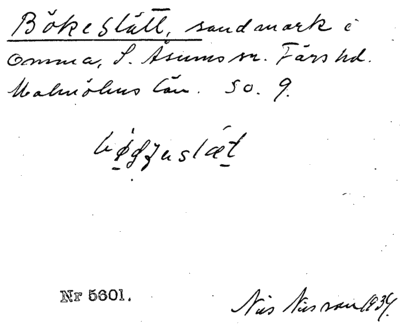 Bökeslätt, sandmark i
Omma, S. Åsums sn. Färs hd.
Malmöhus län. so. 9.
bøgʒuslæt
Nr 5601.
Nils Nilsson 1934.